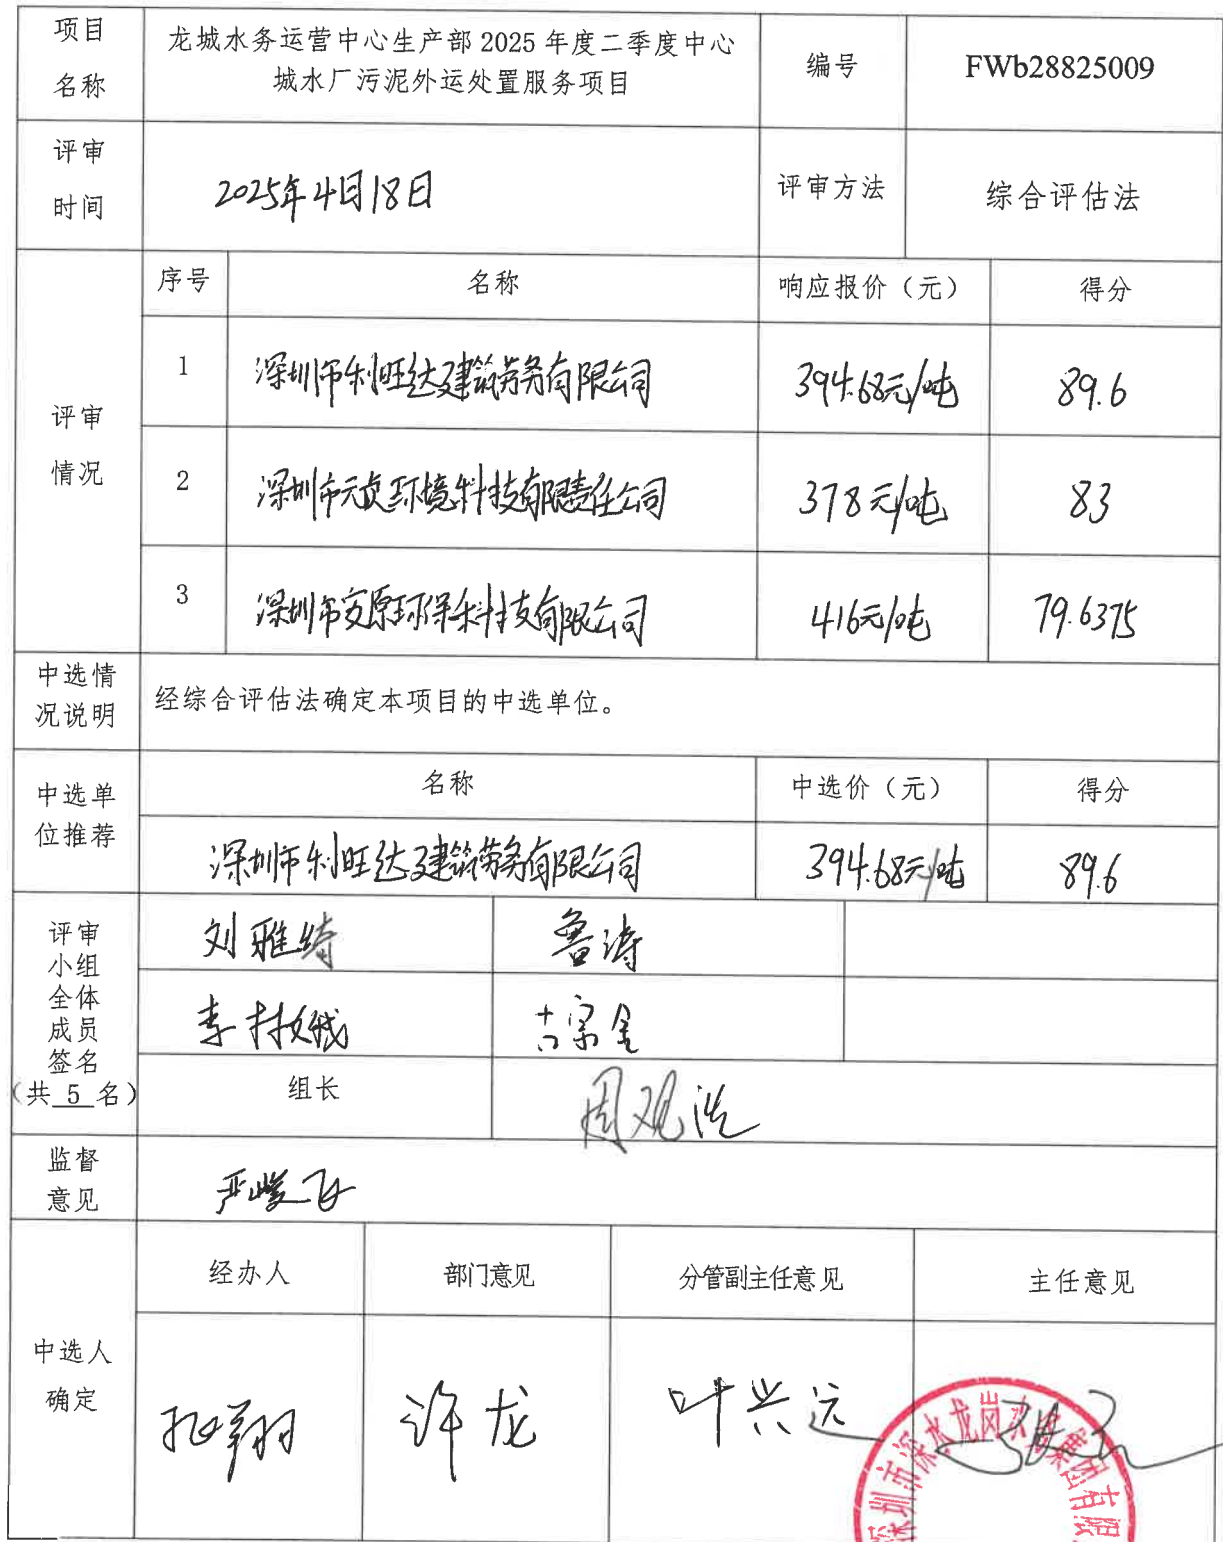 项目名称
龙城水务运营中心生产部 2025 年度二季度中心
城水厂污泥外运处置服务项目
编号
FWb28825009
评审时间
2025年4月18日
评审方法
综合评估法
评审情况
序号 名称 响应报价（元） 得分
1 深圳市利旺达建筑劳务有限公司 394.68元/吨 89.6
2 深圳市元贞环境科技有限责任公司 378元/吨 83
3 深圳市安原环保科技有限公司 416元/吨 79.6375
中选情况说明
经综合评估法确定本项目的中选单位。
中选单位推荐
名称 中选价（元） 得分
深圳市利旺达建筑劳务有限公司 394.68元/吨 89.6
评审
小组
全体
成员
签名
（共 5 名）
刘雅绮 鲁涛
李
吉宗全
组长 周观浩
监督意见
严峻飞
中选人确定
经办人 部门意见 分管副主任意见 主任意见
翔 许龙 叶兴远
深圳市深水龙岗水务集团有限